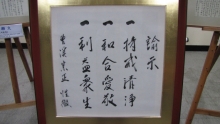 諭示
一 持戒清淨
一 和合愛敬
一 利益衆生